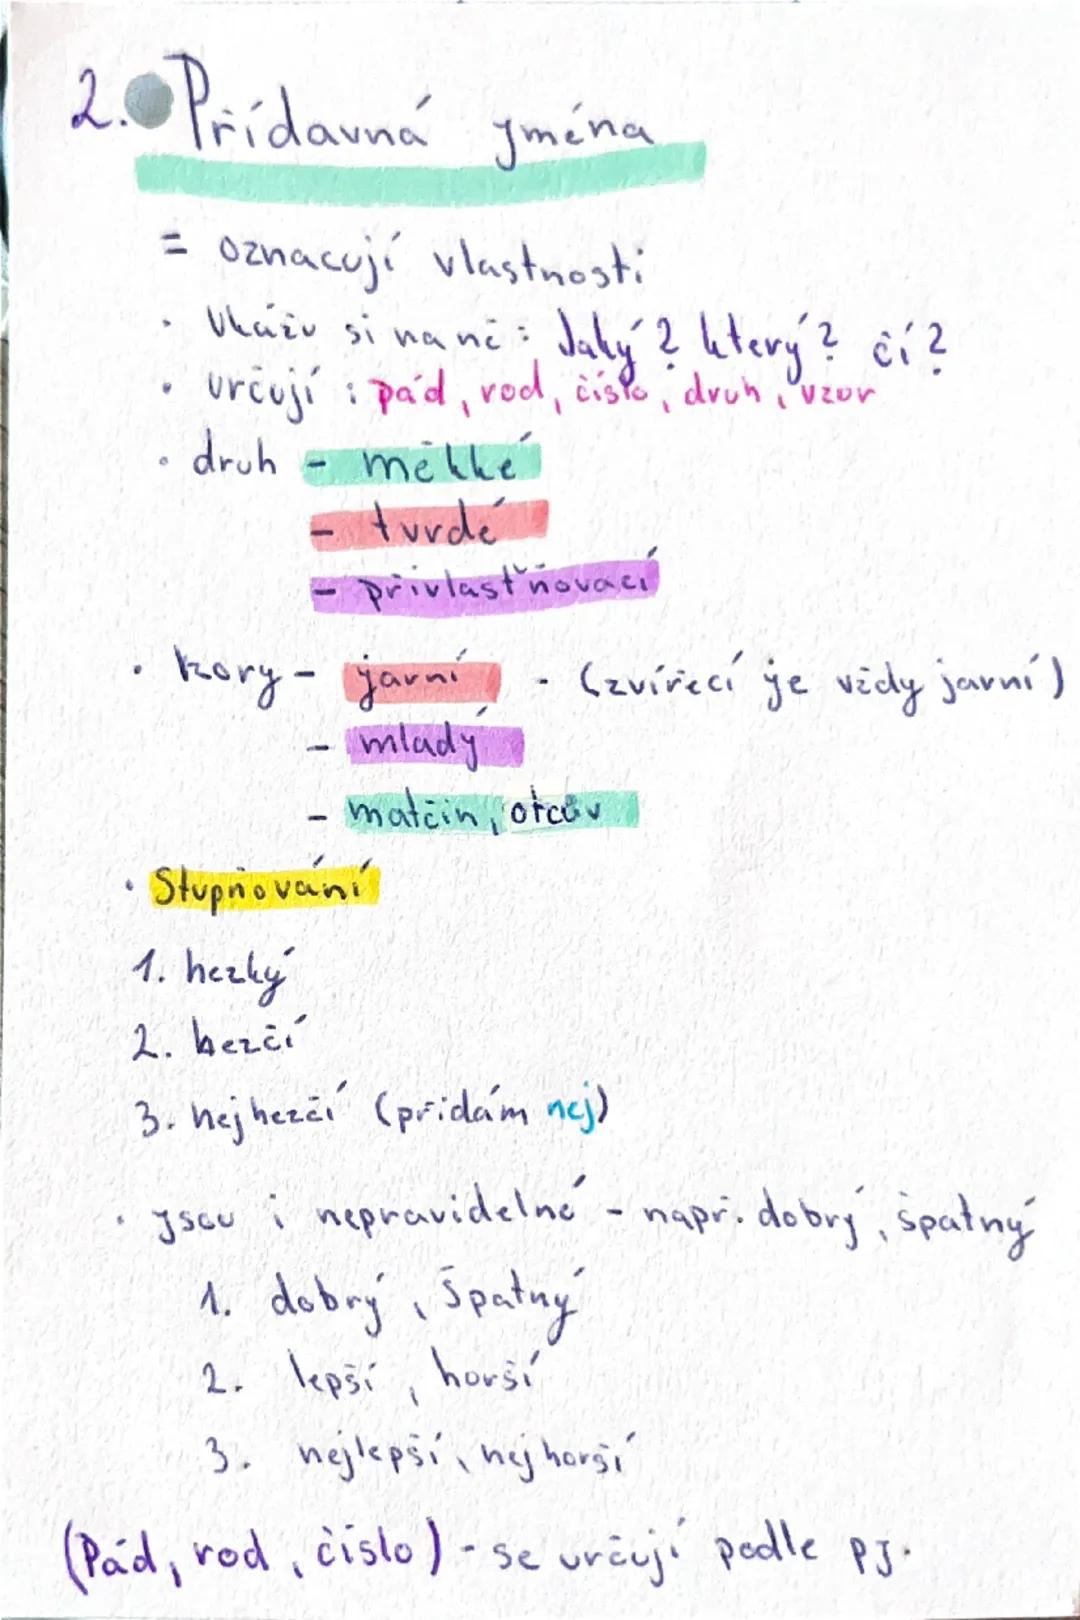 2. Přídavná jména
= označují vlastnosti
• Ukážu si na ně: Jaký? který? čí?
• určují: pád, rod, číslo, druh, vzor
• druh - měkké
- tvrdé
- přivlastňovací
• vzory - jarní - (zvířecí je vždy jarní)
- mladý
- matčin, otcův
• Stupňování
1. hezký
2. hezčí
3. nejhezčí (přidám nej)
• jsou i nepravidelné - např. dobrý, špatný
1. dobrý, špatný
2. lepší, horší
3. nejlepší, nejhorší
(Pád, rod, číslo) - se určují podle pj.